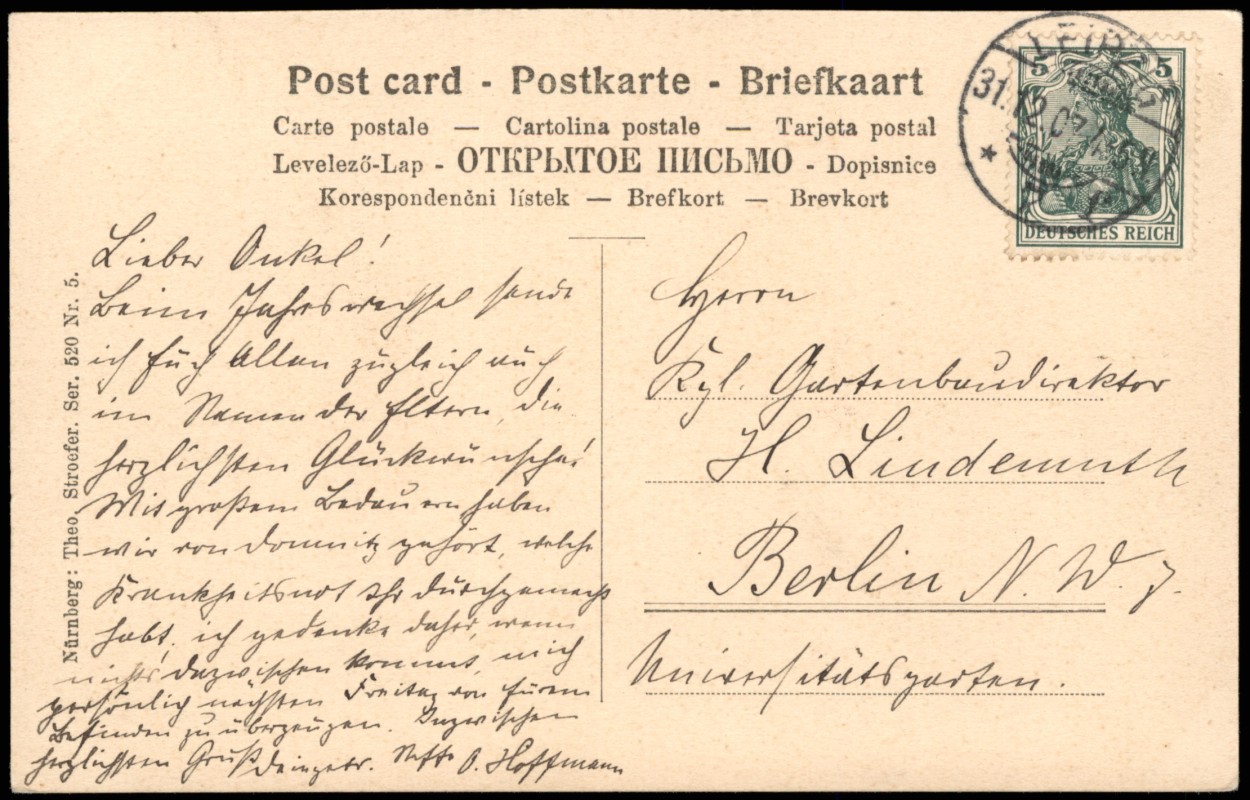 Post card - Postkarte - Briefkaart
Carte postale — Cartolina postale — Tarjeta postal
Levelező-Lap - ОТКРЫТОЕ ПИСЬМО - Dopisnice
Korespondenčni lístek — Brefkort — Brevkort
5 5
DEUTSCHES REICH
LEIPZIG
31.12.
Nürnberg: Theo. Stroefer. Ser. 520 Nr. 5.
Lieber Onkel!
Beim Jahreswechsel sende
ich Euch Allen zugleich auch
im Namen der Eltern, die
herzlichsten Glückwünsche!
Mit großem Bedauern haben
wir von gehört, welche
Krankheitsnot Ihr durchgemacht
habt, ich gedenke daher, wenn
nichts dazwischen kommt, mich
persönlich nächsten Freitag von Eurem
Befinden zu überzeugen. Inzwischen
herzlichsten Gruß Neffe O. Hoffmann
Herrn
Kgl. Gartenbaudirektor
H. Lindemuth
Berlin N. W. 7.
Universitätsgarten.